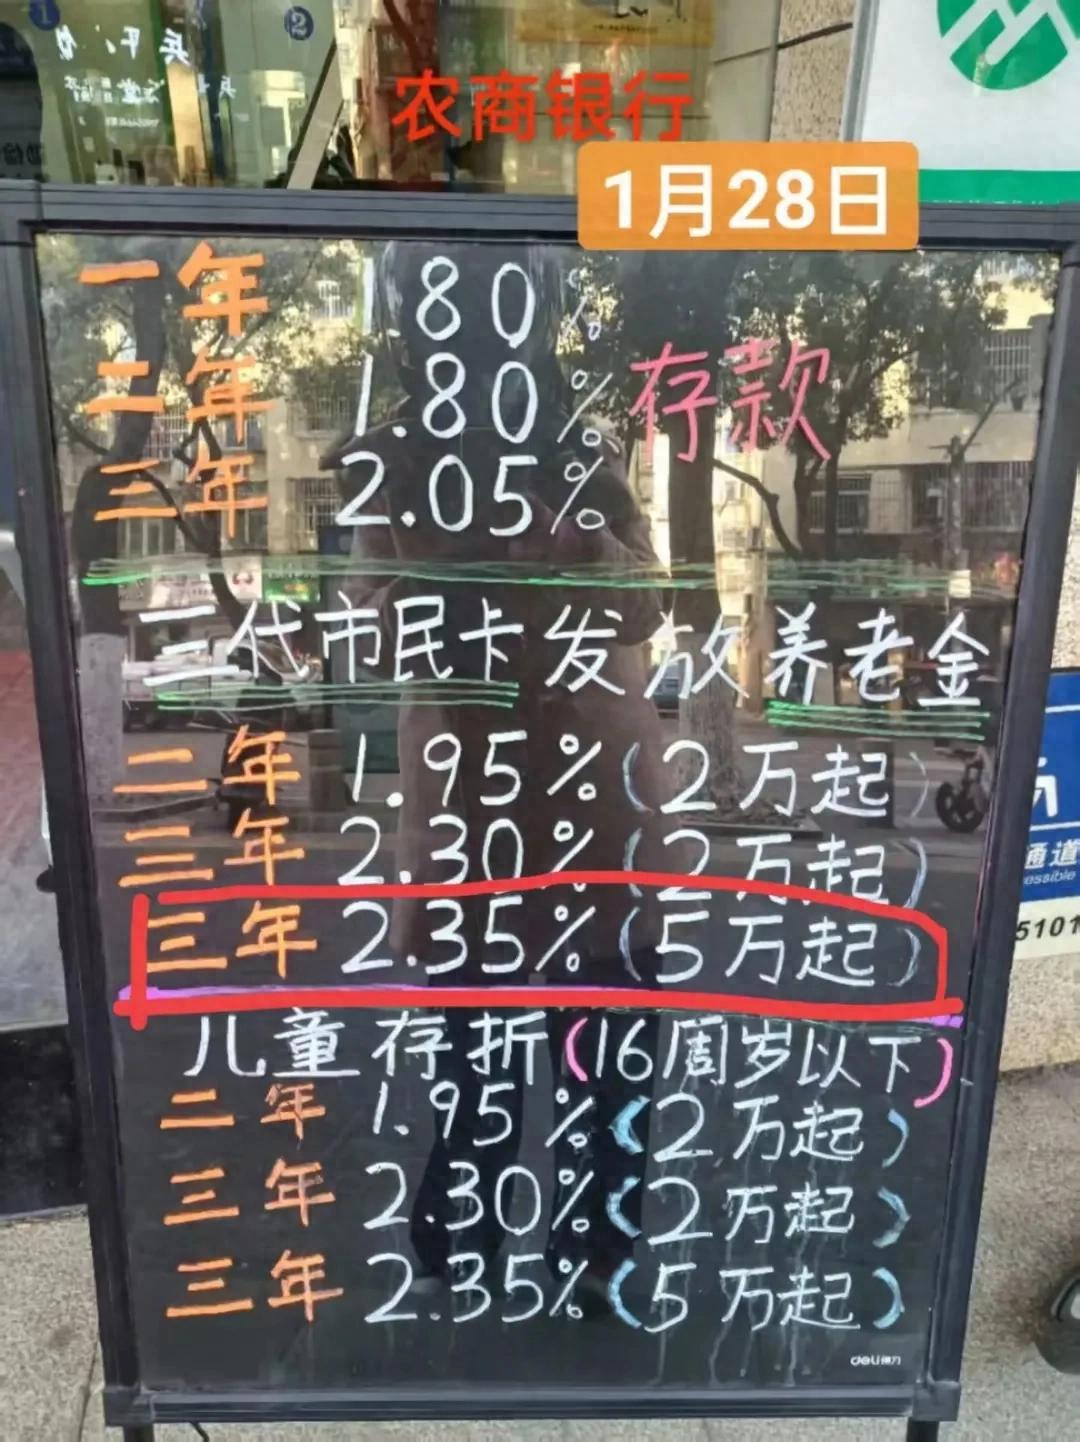 2
农商银行
1月28日
一年 1.80%
二年 1.80%
存款
三年 2.05%
三代市民卡发放养老金
二年 1.95%(2万起)
三年 2.30%(2万起)
三年 2.35%(5万起)
儿童存折(16周岁以下)
二年 1.95%(2万起)
三年 2.30%(2万起)
三年 2.35%(5万起)
deli得力
通道
essible
5101